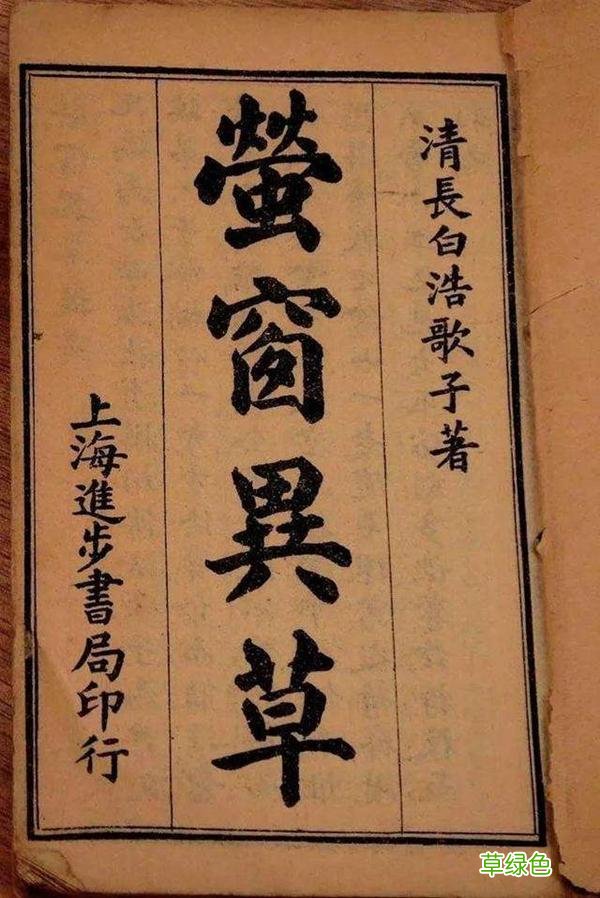 清長白浩歌子著
螢窗異草
上海進步書局印行
草绿色